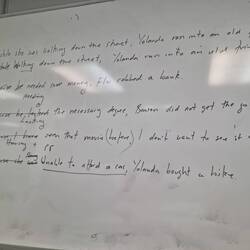 she was walking down the street, Yolanda ran into an old
walking down the street, Yolanda ran into an old
he needed some money, Flu robbed a bank.
needing
the necessary degree, Benson did not get the
Lacking
I have seen that movie (before), I don't want to see it
Having + PP
Unable to afford a car, Yolanda bought a bike